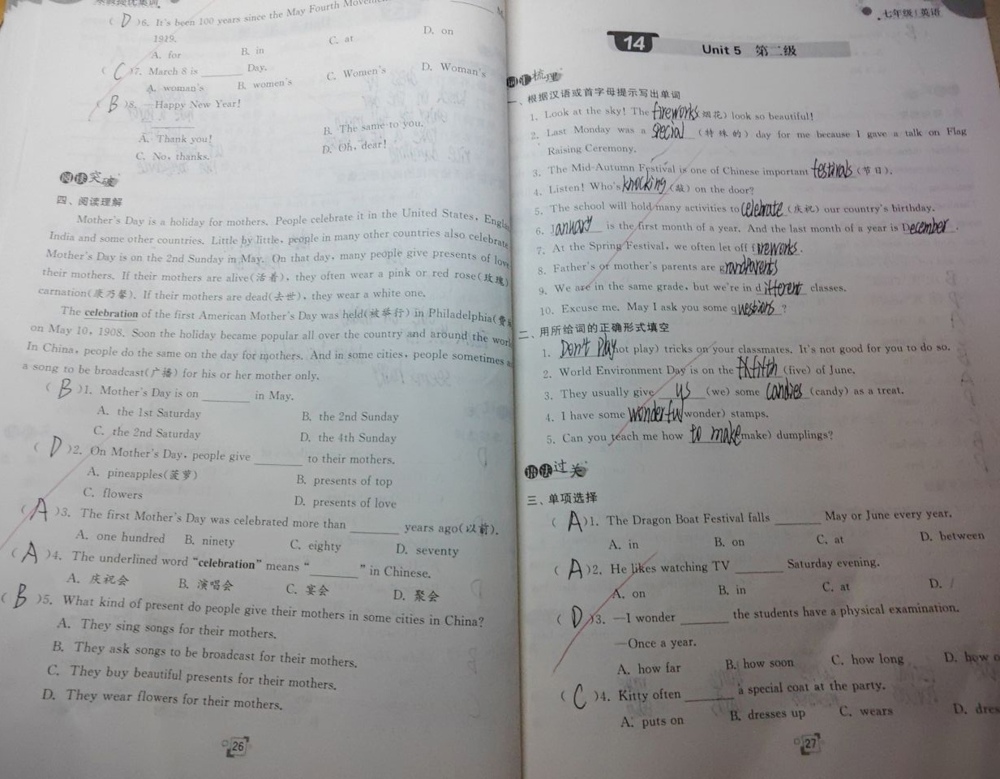 ( D )6. It's been 100 years since the May Fourth
1919.
A. for B. in C. at D. on
( C )7. March 8 is ______ Day.
A. woman's B. women's C. Women's D. Woman's
( B )8. —Happy New Year!
—______
A. Thank you! B. The same to you.
C. No, thanks. D. Oh, dear!
阅读突破
四、阅读理解
Mother's Day is a holiday for mothers. People celebrate it in the United States,
India and some other countries. Little by little, people in many other countries also celebrate
Mother's Day is on the 2nd Sunday in May. On that day, many people give presents of love
their mothers. If their mothers are alive(活着), they often wear a pink or red rose(玫瑰)
carnation(康乃馨). If their mothers are dead(去世), they wear a white one.
The celebration of the first American Mother's Day was held(被举行) in Philadelphia(费
on May 10, 1908. Soon the holiday became popular all over the country and around the
In China, people do the same on the day for mothers. And in some cities, people sometimes
a song to be broadcast(广播) for his or her mother only.
( B )1. Mother's Day is on ______ in May.
A. the 1st Saturday B. the 2nd Sunday
C. the 2nd Saturday D. the 4th Sunday
( D )2. On Mother's Day, people give ______ to their mothers.
A. pineapples(菠萝) B. presents of top
C. flowers D. presents of love
( A )3. The first Mother's Day was celebrated more than ______ years ago(以前).
A. one hundred B. ninety C. eighty D. seventy
( A )4. The underlined word "celebration" means "______" in Chinese.
A. 庆祝会 B. 演唱会 C. 宴会 D. 聚会
( B )5. What kind of present do people give their mothers in some cities in China?
A. They sing songs for their mothers.
B. They ask songs to be broadcast for their mothers.
C. They buy beautiful presents for their mothers.
D. They wear flowers for their mothers.
26
七年级/英语
14 Unit 5 第二级
词汇梳理
一、根据汉语或首字母提示写出单词
1. Look at the sky! The fireworks 烟花) look so beautiful!
2. Last Monday was a special (特殊的) day for me because I gave a talk on Flag
Raising Ceremony.
3. The Mid-Autumn Festival is one of Chinese important festivals (节日).
4. Listen! Who's knocking (敲) on the door?
5. The school will hold many activities to celebrate (庆祝) our country's birthday.
6. January is the first month of a year. And the last month of a year is December.
7. At the Spring Festival, we often let off fireworks.
8. Father's or mother's parents are grandparents
9. We are in the same grade, but we're in different classes.
10. Excuse me. May I ask you some questions?
二、用所给词的正确形式填空
1. Don't play not play) tricks on your classmates. It's not good for you to do so.
2. World Environment Day is on the fifth (five) of June.
3. They usually give us (we) some candies (candy) as a treat.
4. I have some wonderful wonder) stamps.
5. Can you teach me how to make make) dumplings?
语法过关
三、单项选择
( A )1. The Dragon Boat Festival falls ______ May or June every year.
A. in B. on C. at D. between
( A )2. He likes watching TV ______ Saturday evening.
A. on B. in C. at D. /
( D )3. —I wonder ______ the students have a physical examination.
—Once a year.
A. how far B. how soon C. how long D. how
( C )4. Kitty often ______ a special coat at the party.
A. puts on B. dresses up C. wears D.
27